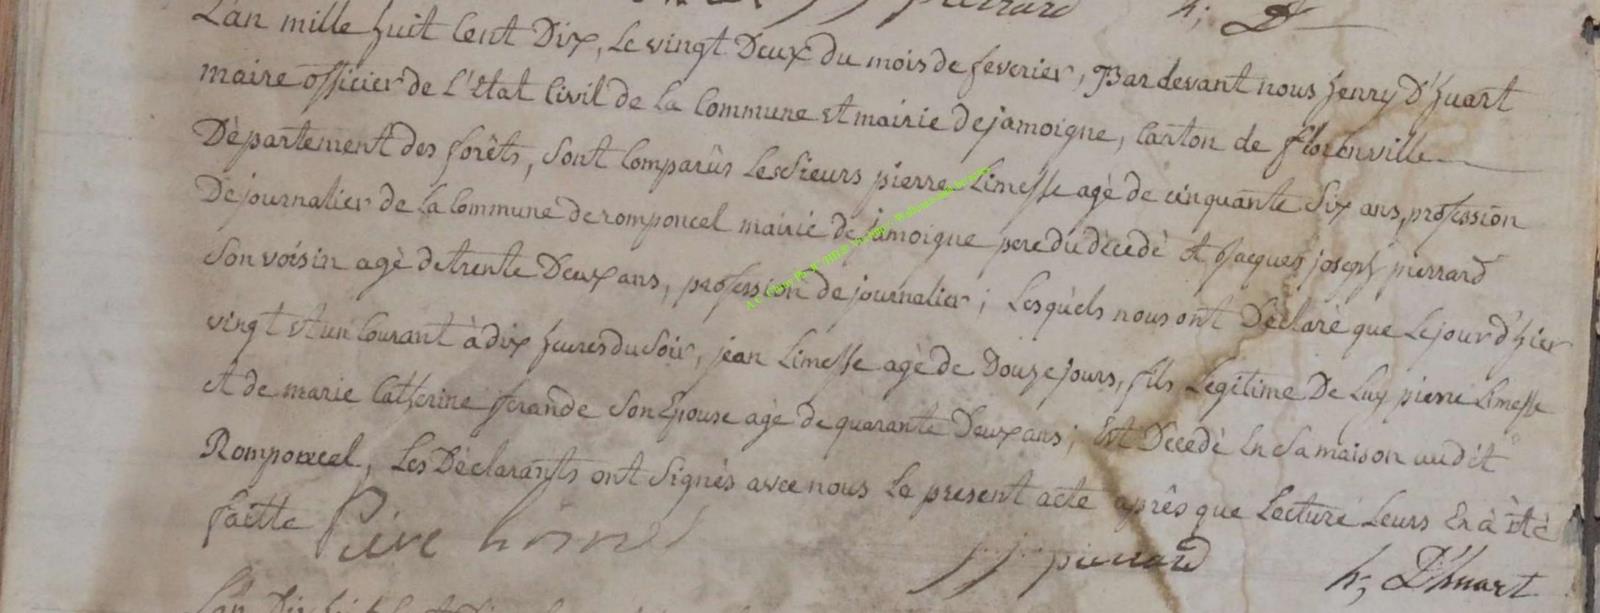 pierrard h; D
L'an mille huit Cent Dix, Le vingt Deux du mois de feverier, Par devant nous henry D'huart
maire officier de L'Etat Civil de La Commune et mairie de jamoigne, Canton de florenville
Département des forêts, sont Comparûs Les Sieurs pierre Limesse agè de cinquante Six ans, profession
De journalier de La Commune de romponcel mairie de jamoigne pere du dècedè et Jacques joseph pierrard
Son voisin agè de trente Deux ans, profession de journalier; Lesquels nous ont Dèclarè que Le jour d'hier
vingt et un Courant à dix heures du Soir, jean Limesse agè de Douze jours, fils Legitime De Luy pierre Limesse
et de marie Catherine Son Epouse agè de quarante Deux ans; Est Dècedè En Sa maison audit
Romponcel, Les Dèclarants ont Signès avec nous Le present acte après que Lecture Leurs En à ètè
faitte Piere jj pierrard h; D'huart
L'an Dix huit